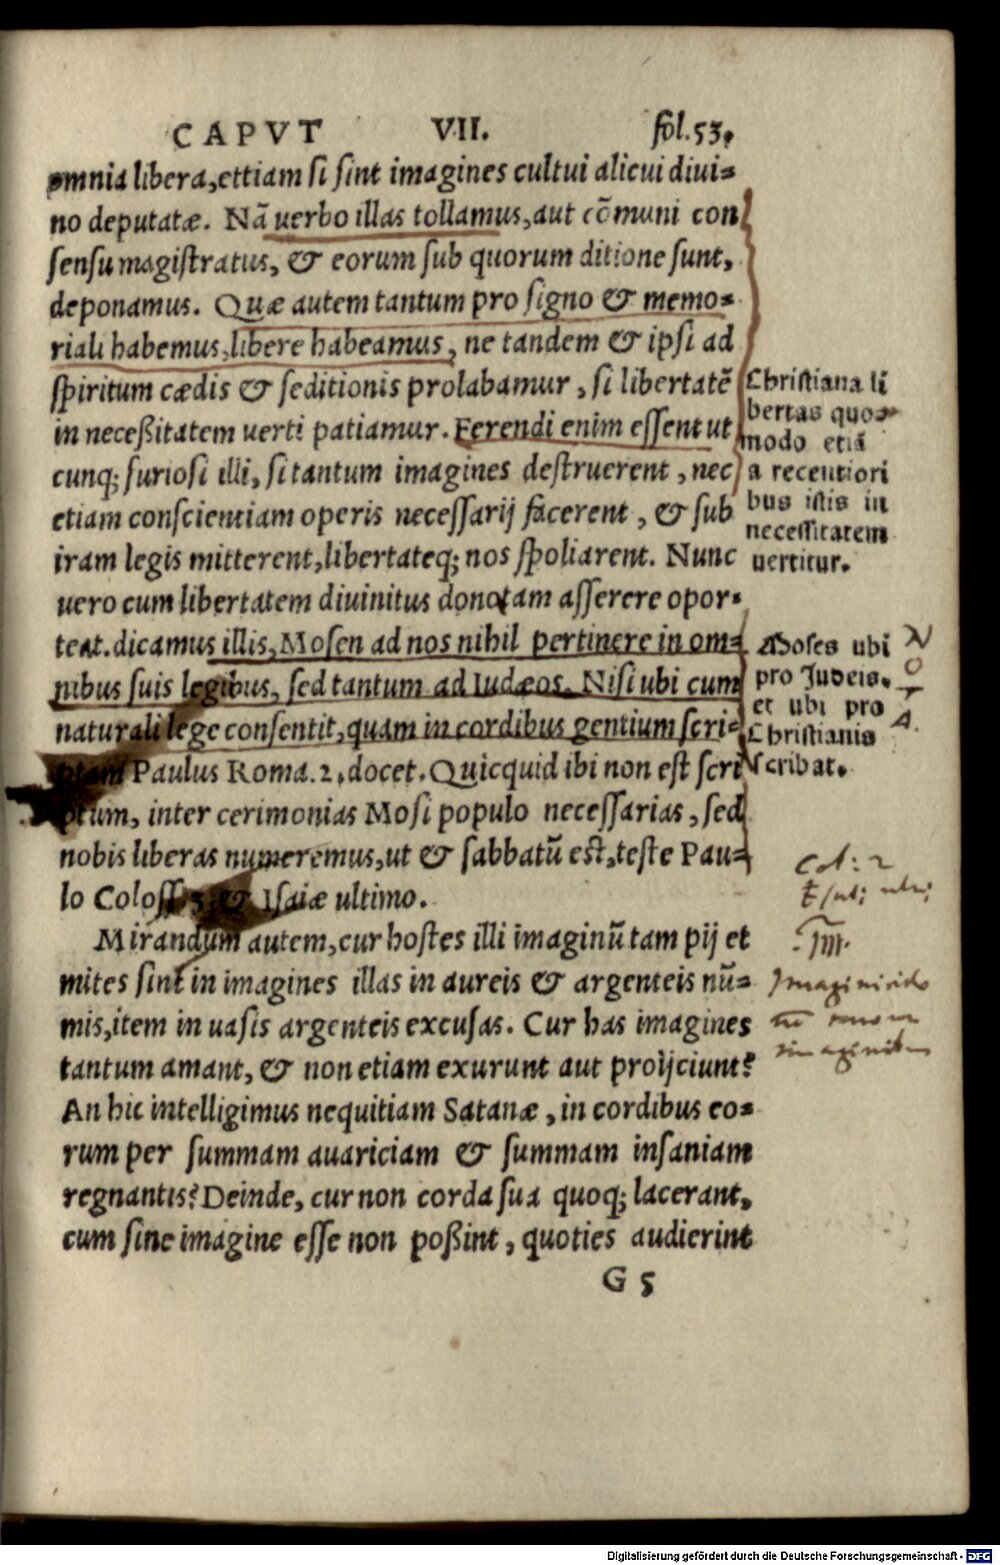 CAPVT VII. fol.53.
omnia libera,ettiam si sint imagines cultui alicui diui=
no deputatæ. Nã uerbo illas tollamus,aut cõmuni con
sensu magistratus, & eorum sub quorum ditione sunt,
deponamus. Quæ autem tantum pro signo & memo=
riali habemus,libere habeamus, ne tandem & ipsi ad
spiritum cædis & seditionis prolabamur, si libertatẽ
in neceßitatem uerti patiamur. Ferendi enim essent ut
cunq; furiosi illi, si tantum imagines destruerent, nec
etiam conscientiam operis necessarij facerent, & sub
iram legis mitterent,libertateq; nos spoliarent. Nunc
uero cum libertatem diuinitus donatam asserere opor=
teat.dicamus illis, Mosen ad nos nihil pertinere in om=
nibus suis legibus, sed tantum ad Iudæos. Nisi ubi cum
naturali lege consentit,quam in cordibus gentium scri=
ptam Paulus Roma.2.docet. Quicquid ibi non est scri
ptum, inter cerimonias Mosi populo necessarias, sed
nobis liberas numeremus,ut & sabbatũ est,teste Pau=
lo Coloss. 3. & Isaiæ ultimo.
Mirandum autem,cur hostes illi imaginũ tam pij et
mites sint in imagines illas in aureis & argenteis nũ=
mis,item in uasis argenteis excusas. Cur has imagines
tantum amant, & non etiam exurunt aut proijciunt?
An hic intelligimus nequitiam Satanæ, in cordibus eo=
rum per summam auariciam & summam insaniam
regnantis? Deinde, cur non corda sua quoq; lacerant,
cum sine imagine esse non poßint, quoties audierint
G 5
Christiana li
bertas quo=
modo etiã
a recentiori
bus istis in
necessitatem
uertitur.
Moses ubi
pro Iudeis.
et ubi pro
Christianis
scribat.
NOTA.
Col: 2